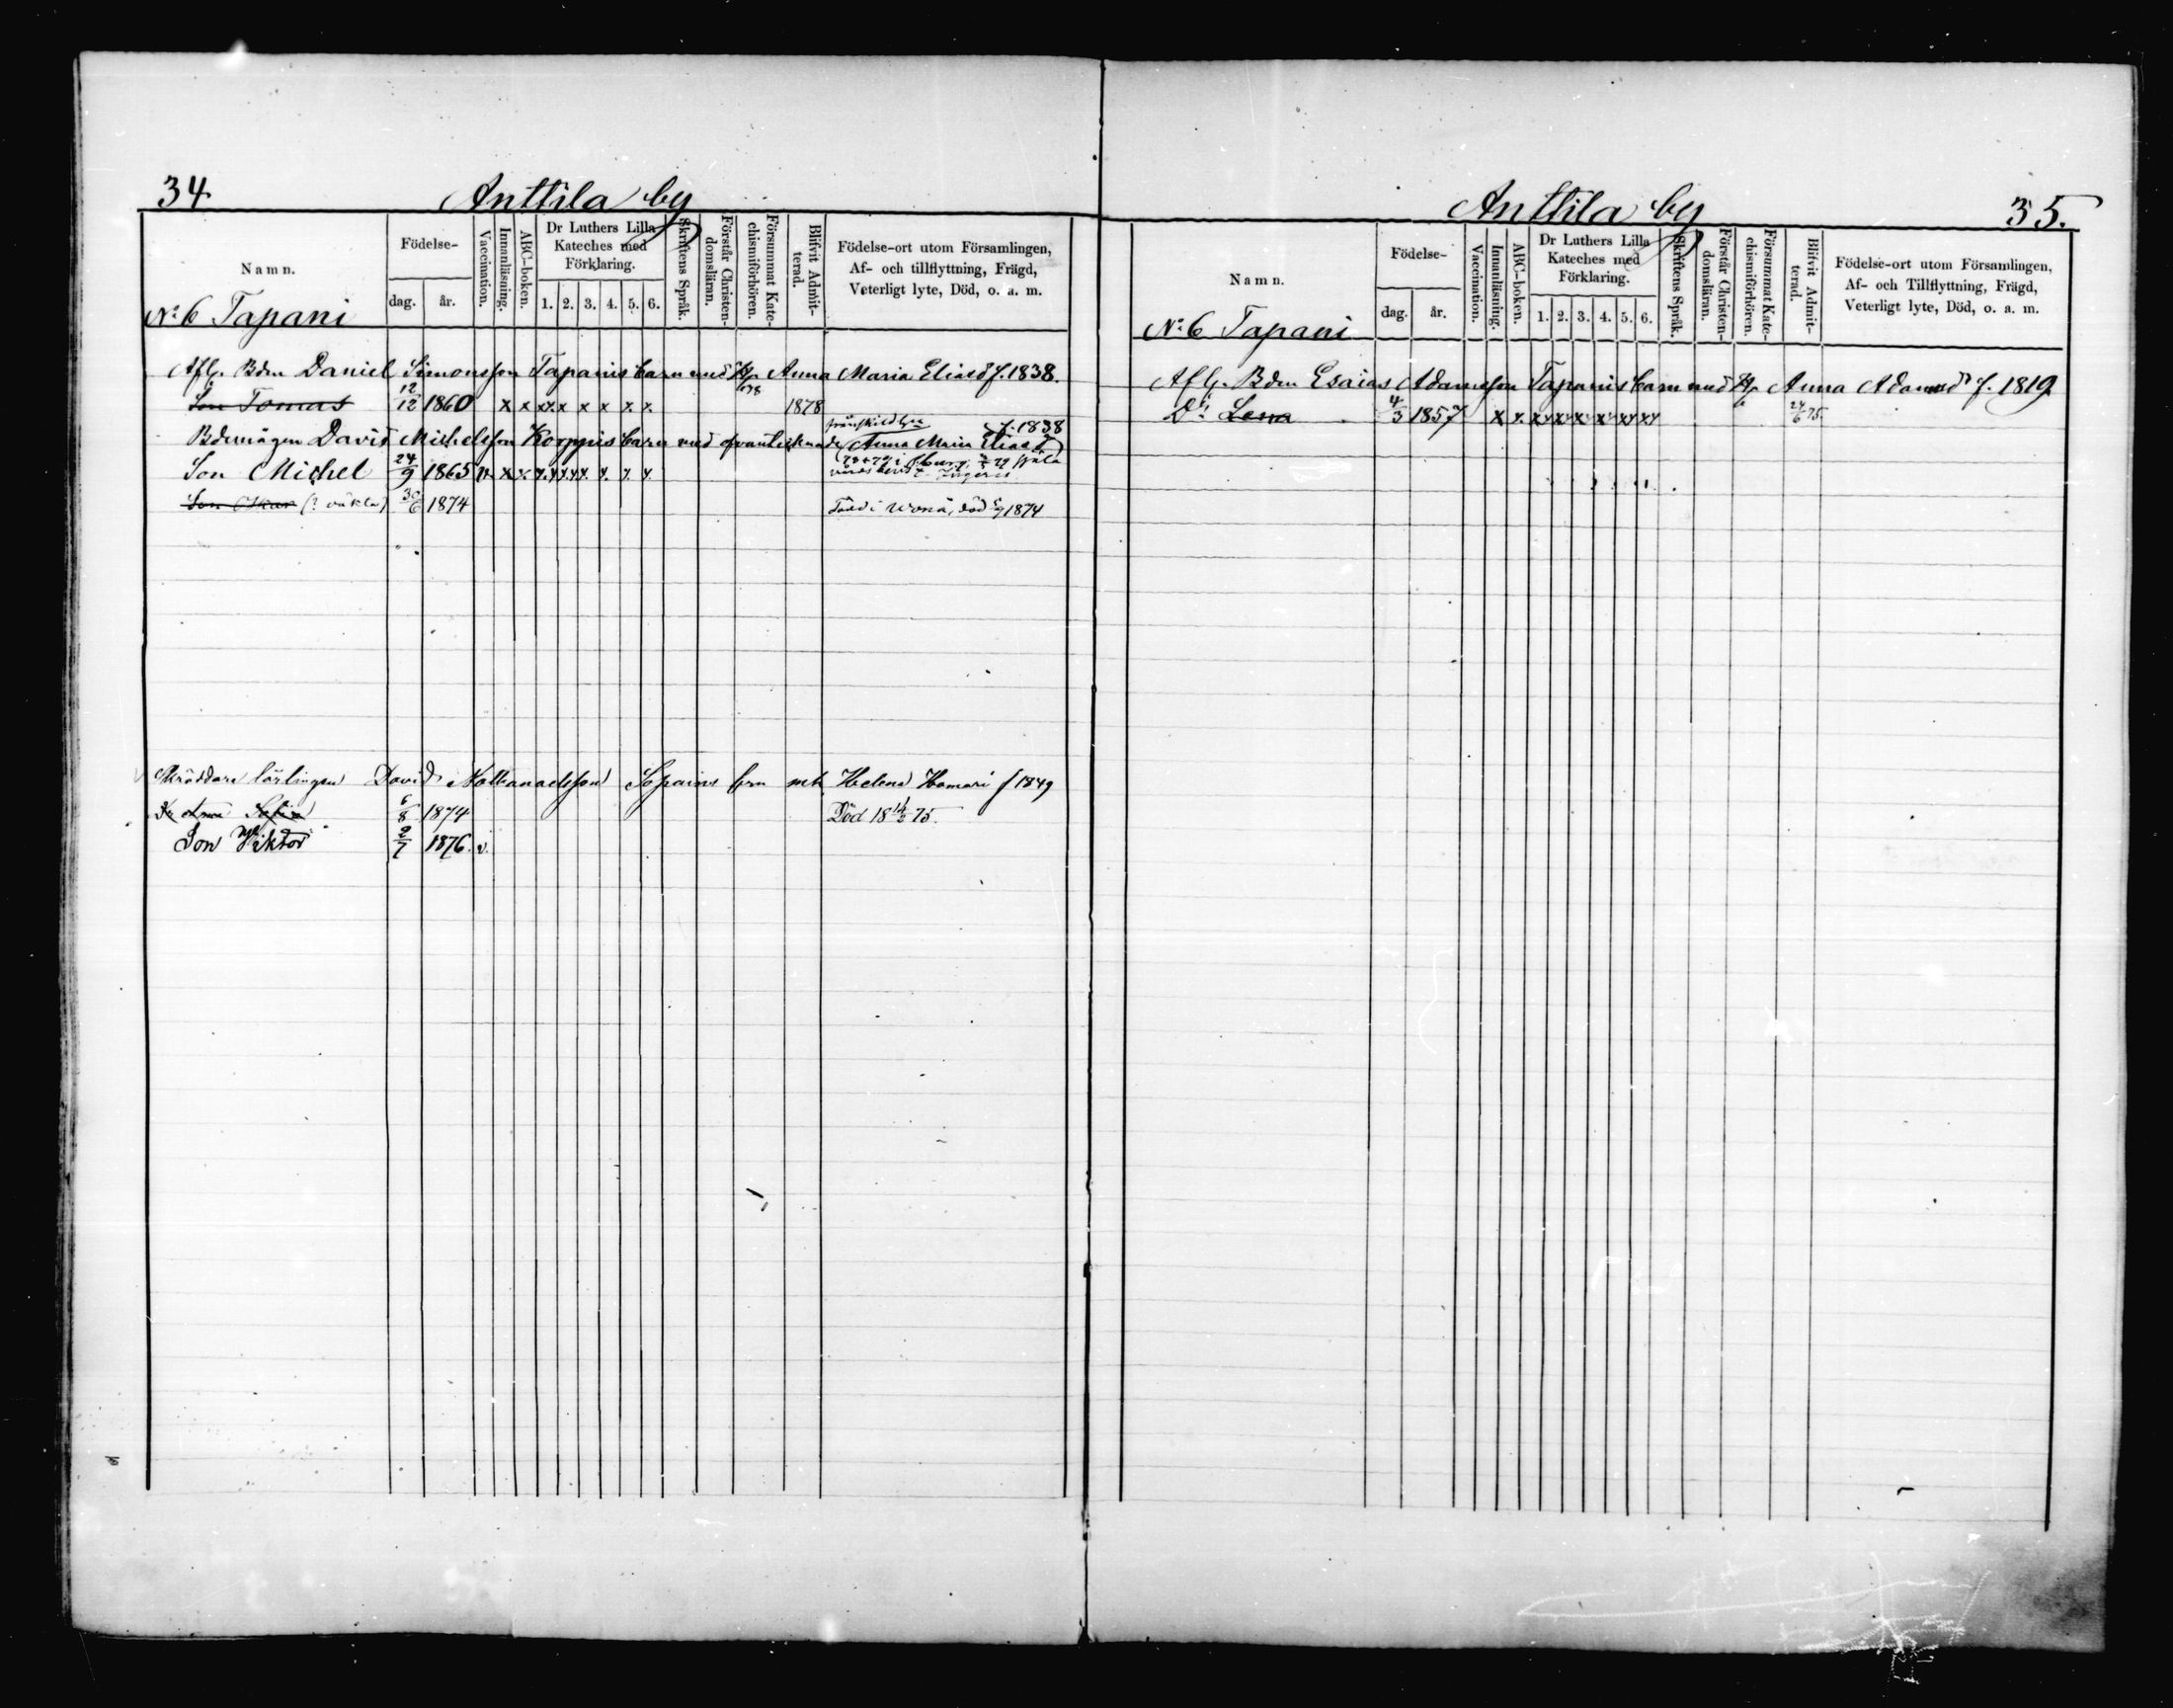 34
Anttila by
Namn.
Födelse-
dag.
år.
Vaccination.
Innanläsning.
ABC-boken.
Dr Luthers Lilla
Kateches med
Förklaring.
1. 2. 3. 4. 5. 6.
Skriftens Språk.
Förstår Christen-
domsläran.
Försummat Kate-
chismiförhören.
Blifvit Admit-
terad.
Födelse-ort utom Församlingen,
Af- och tillflyttning, Frägd,
Veterligt lyte, Död, o. a. m.
No 6 Tapani
Afl. Bdn Daniel Simonsson Tapanis barn med Anna Maria Eliasd f. 1838.
Son Tomas 12/12 1860 x x x x x x x x x 1878
frånskild
f. 1838
Bdemågen David Michelsson Korppis barn med Anna Maria Eliasd
Son Michel 24/9 1865 v. x x x x x x x x
Son Oskar 30/6 1874 Född i död 1874
Skräddare lärlingen David Nathanaelsson Sopains brn m h Helena Hamari f 1849
Sofia 6/8 1874 Död 18 75.
Son Viktor 2/7 1876 v.
Anttila by
35.
Namn.
Födelse-
dag.
år.
Vaccination.
Innanläsning.
ABC-boken.
Dr Luthers Lilla
Kateches med
Förklaring.
1. 2. 3. 4. 5. 6.
Skriftens Språk.
Förstår Christen-
domsläran.
Försummat Kate-
chismiförhören.
Blifvit Admit-
terad.
Födelse-ort utom Församlingen,
Af- och Tillflyttning, Frägd,
Veterligt lyte, Död, o. a. m.
No 6 Tapani
Afl. Bdn Esaias Adamsson Tapanis barn med Anna Adamsd f. 1819
Dr Lena 4/3 1857 x x x x x x x x 24/6 75.